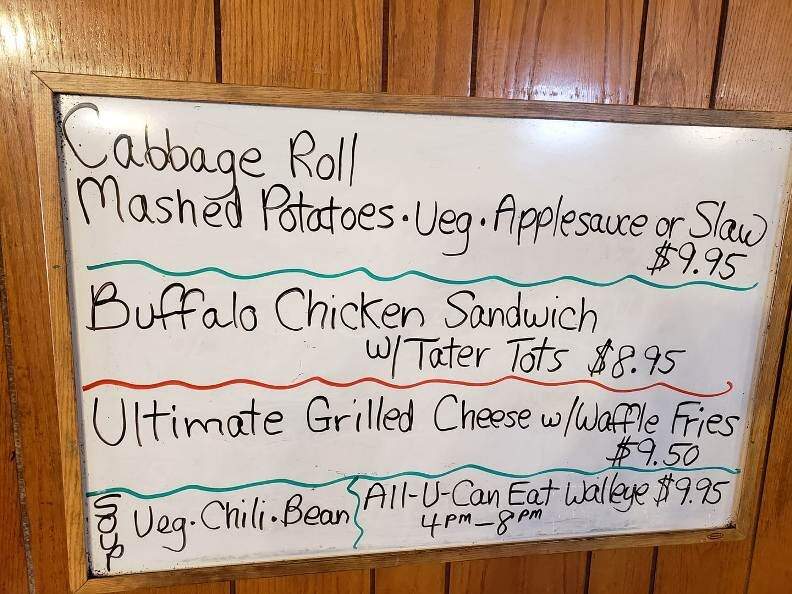 Cabbage Roll
Mashed Potatoes · Veg · Applesauce or Slaw
$9.95
Buffalo Chicken Sandwich
w/Tater Tots $8.95
Ultimate Grilled Cheese w/Waffle Fries
$9.50
Soup
Veg · Chili · Bean
All-U-Can Eat Walleye $9.95
4PM-8PM